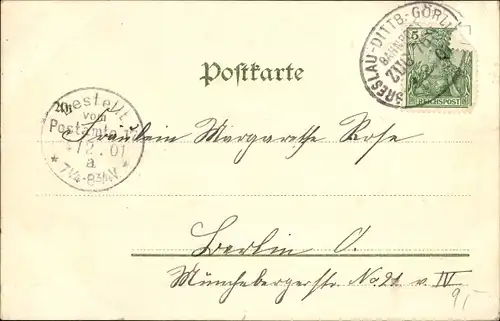 BRESLAU-DITTB.-GÖRLITZ
BAHNPOST
ZUG
5
REICHSPOST
Postkarte
20
Bestellt
vom
Postamte
12.01
a
7¼-8¾V.
Fräulein Margarethe Rose
Berlin O.
Münchebergerstr. No. 21 v. IV
9,-